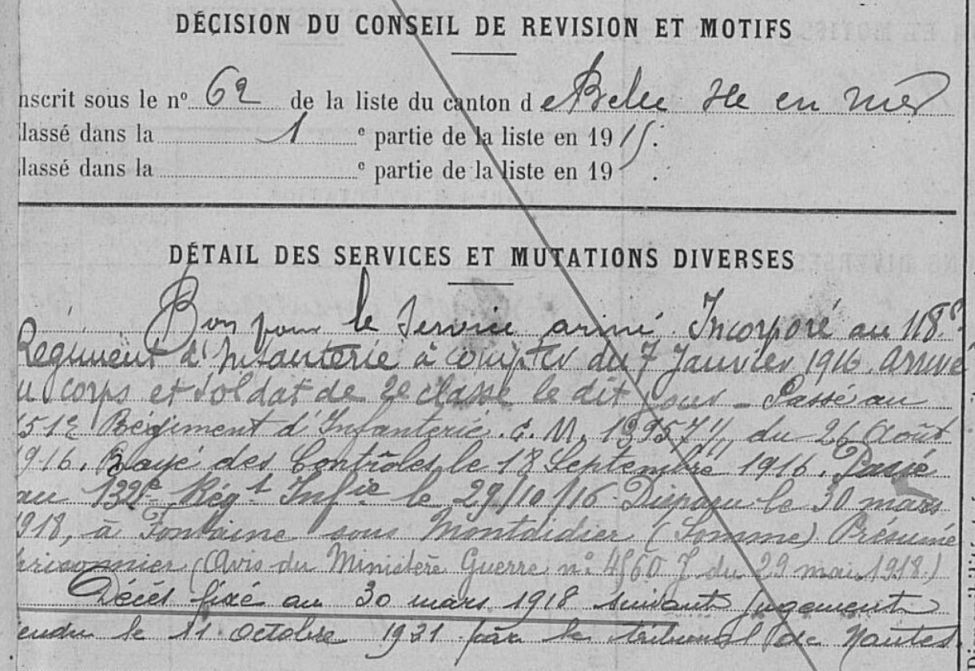 DÉCISION DU CONSEIL DE REVISION ET MOTIFS
nscrit sous le n° 62 de la liste du canton de Belle Ile en mer
lassé dans la 1 e partie de la liste en 1915.
lassé dans la e partie de la liste en 19 .
DÉTAIL DES SERVICES ET MUTATIONS DIVERSES
Bon pour le Service armé. Incorporé au 118e
Régiment d'Infanterie à compter du 7 Janvier 1916. arrivé
u corps et soldat de 2e classe le dit jour _ Passé au
51e Régiment d'Infanterie. C. M. du 26 Août
1916. Rayé des Contrôles le 18 Septembre 1916. Passé
au Régt Infie le 29/10/16. Disparu le 30 mars
918, à Fontaine sous Montdidier (Somme) Présumé
prisonnier (Avis du Ministère Guerre n° 4560 J du 29 mai 1918.)
Décès fixé au 30 mars 1918 suivant jugement
endu le 11 octobre 1921 par le tribunal de Nantes